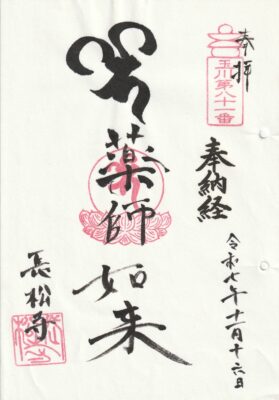 奉拝
玉川第八十一番
奉納経
令和七年十一月十六日
薬師如来
長松寺